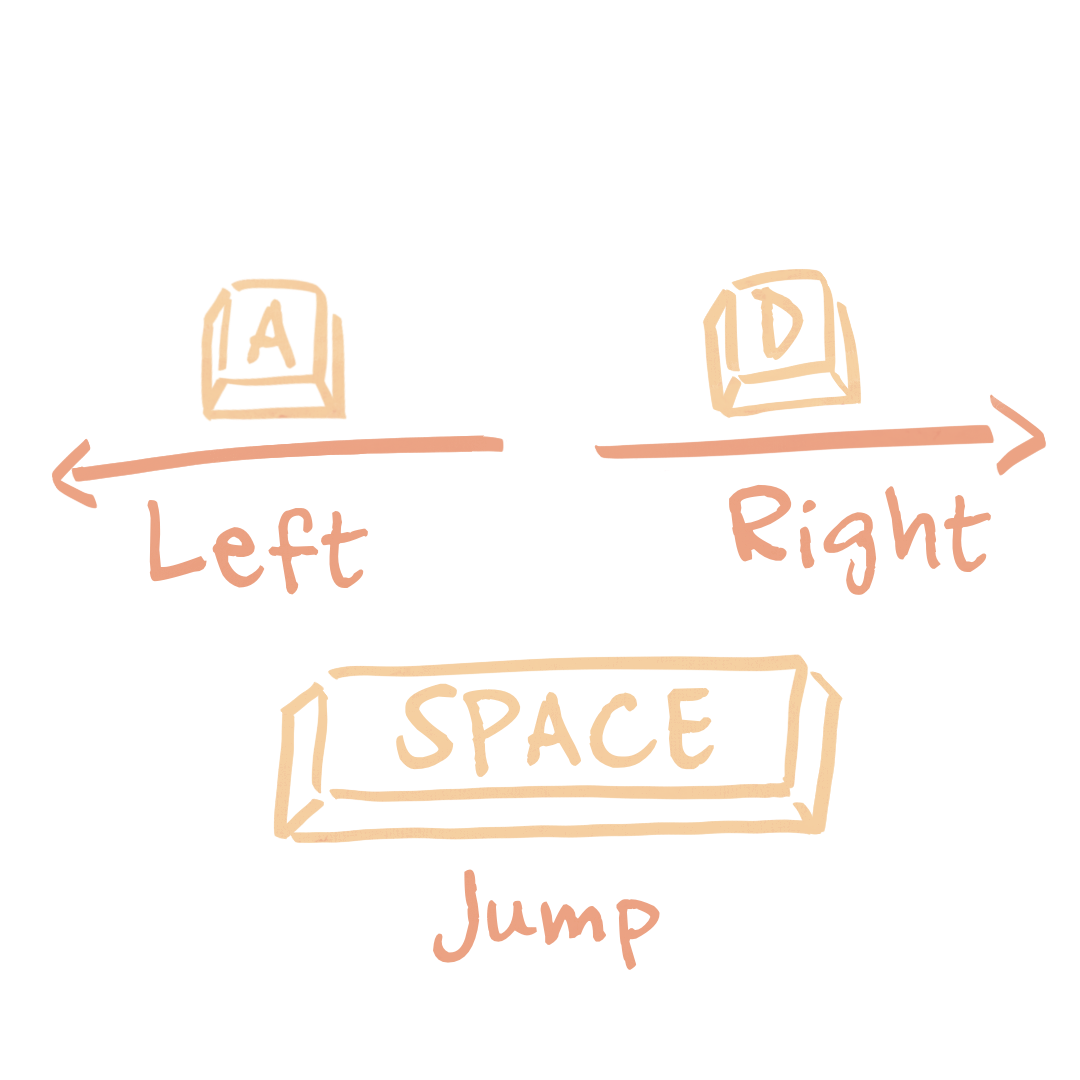 A D
Left Right
SPACE
Jump